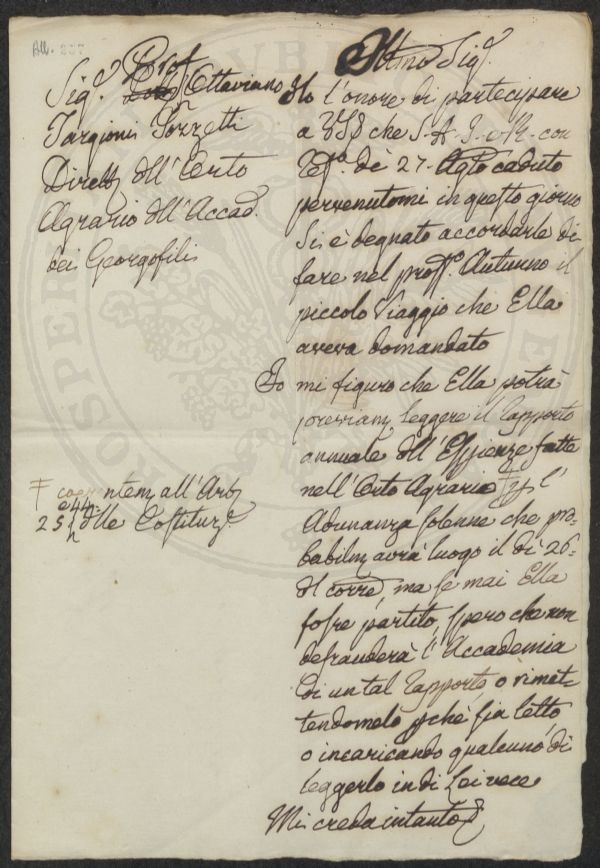 All. 237
Sig.r Prof Ottaviano
Targioni Tozzetti
Dirett dell'Orto
Agrario dell'Accad.
dei Georgofili
Illmo Sig.r
Ho l'onore di partecipare
a VSI che S. A. I. e R. con
de 27. Agto caduto
pervenutomi in questo giorno
si è degnato accordarle di
fare nel pross.o Autunno il
piccolo Viaggio che Ella
aveva domandato
Io mi figuro che Ella potrà
leggere il Rapporto
annuale dell'Esperienze fatte
nell'Orto Agrario l'
Adunanza solenne che pro-
babilm avrà luogo il dì 26
del corre, ma se mai Ella
fosse partito, spero che non
defrauderà l'Accademia
di un tal Rapporto, o rimet-
tendomelo pchè sia letto,
o incaricando qualcuno di
leggerlo in di Lei vece
Mi creda intanto
all'Art
25 e 44 delle Costituz.i